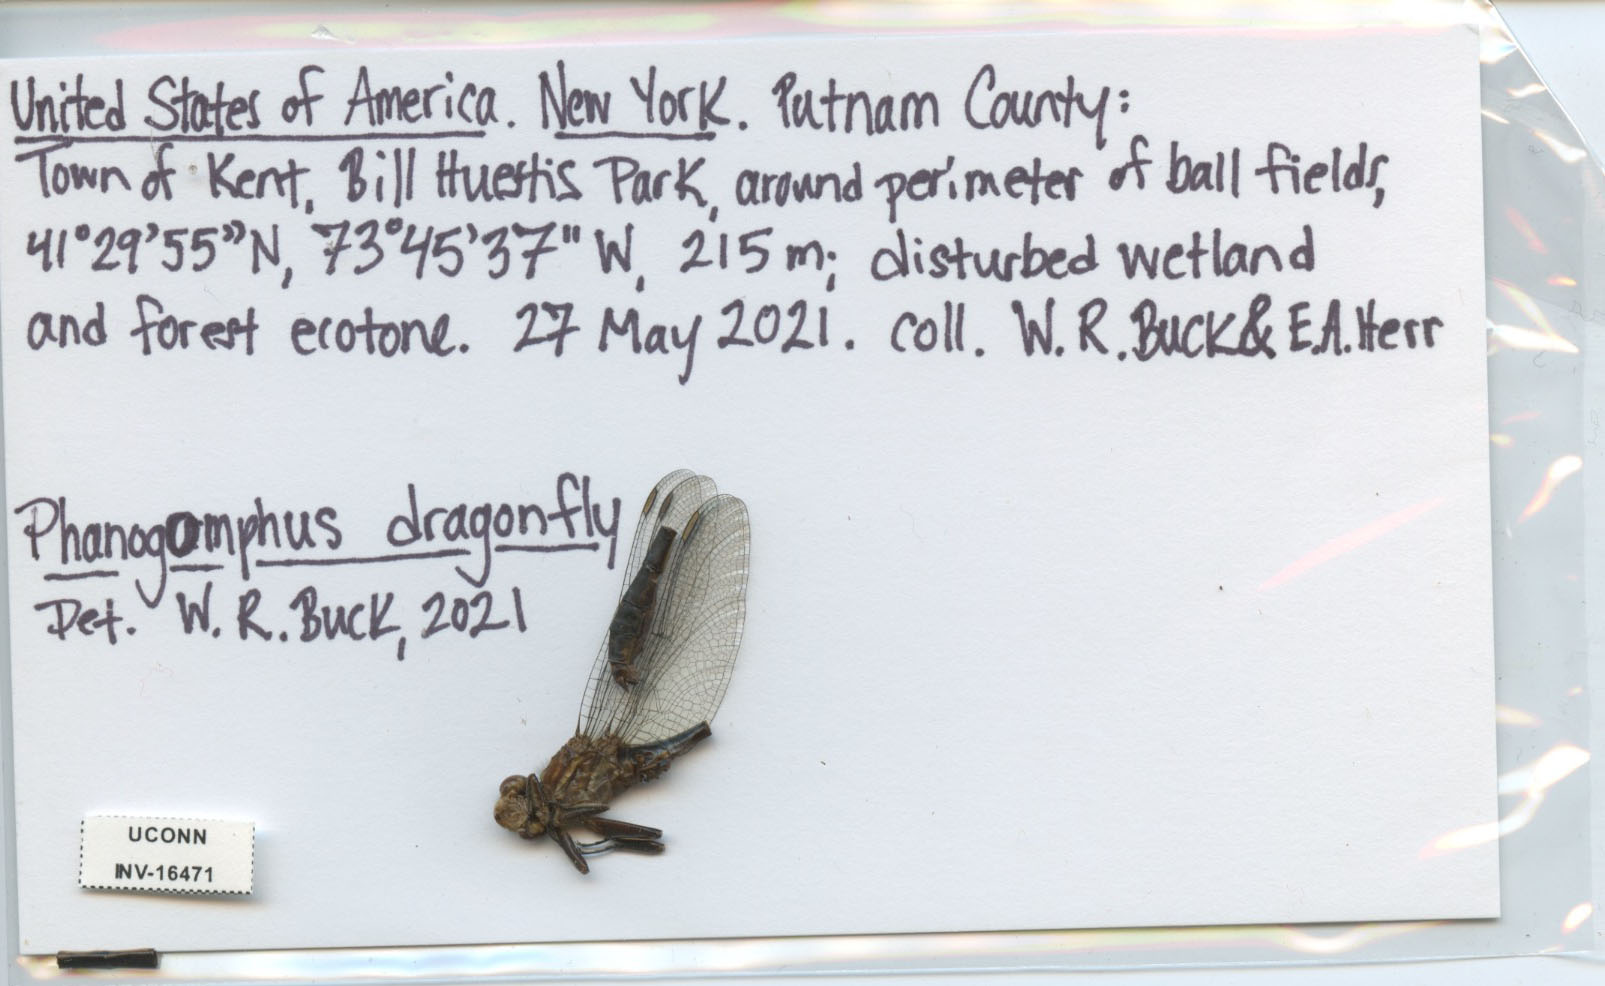 United States of America. New York. Putnam County:
Town of Kent, Bill Huestis Park, around perimeter of ball fields,
41°29'55"N, 73°45'37" W, 215 m; disturbed wetland
and forest ecotone. 27 May 2021. coll. W. R. Buck & E.A. Herr
Phanogomphus dragonfly
Det. W. R. Buck, 2021
UCONN
INV-16471